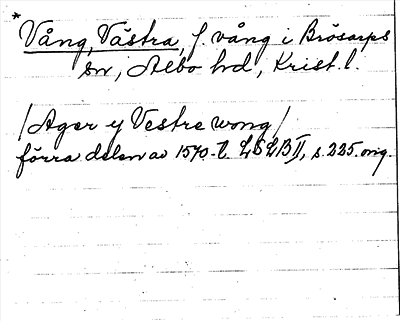 *Vång, Västra, f. vång i Brösarps
sn, Albo hd, Krist. l.
/Ager y Vestre wong/
förra delen av 1570-t. LSLB II, s. 225. orig.